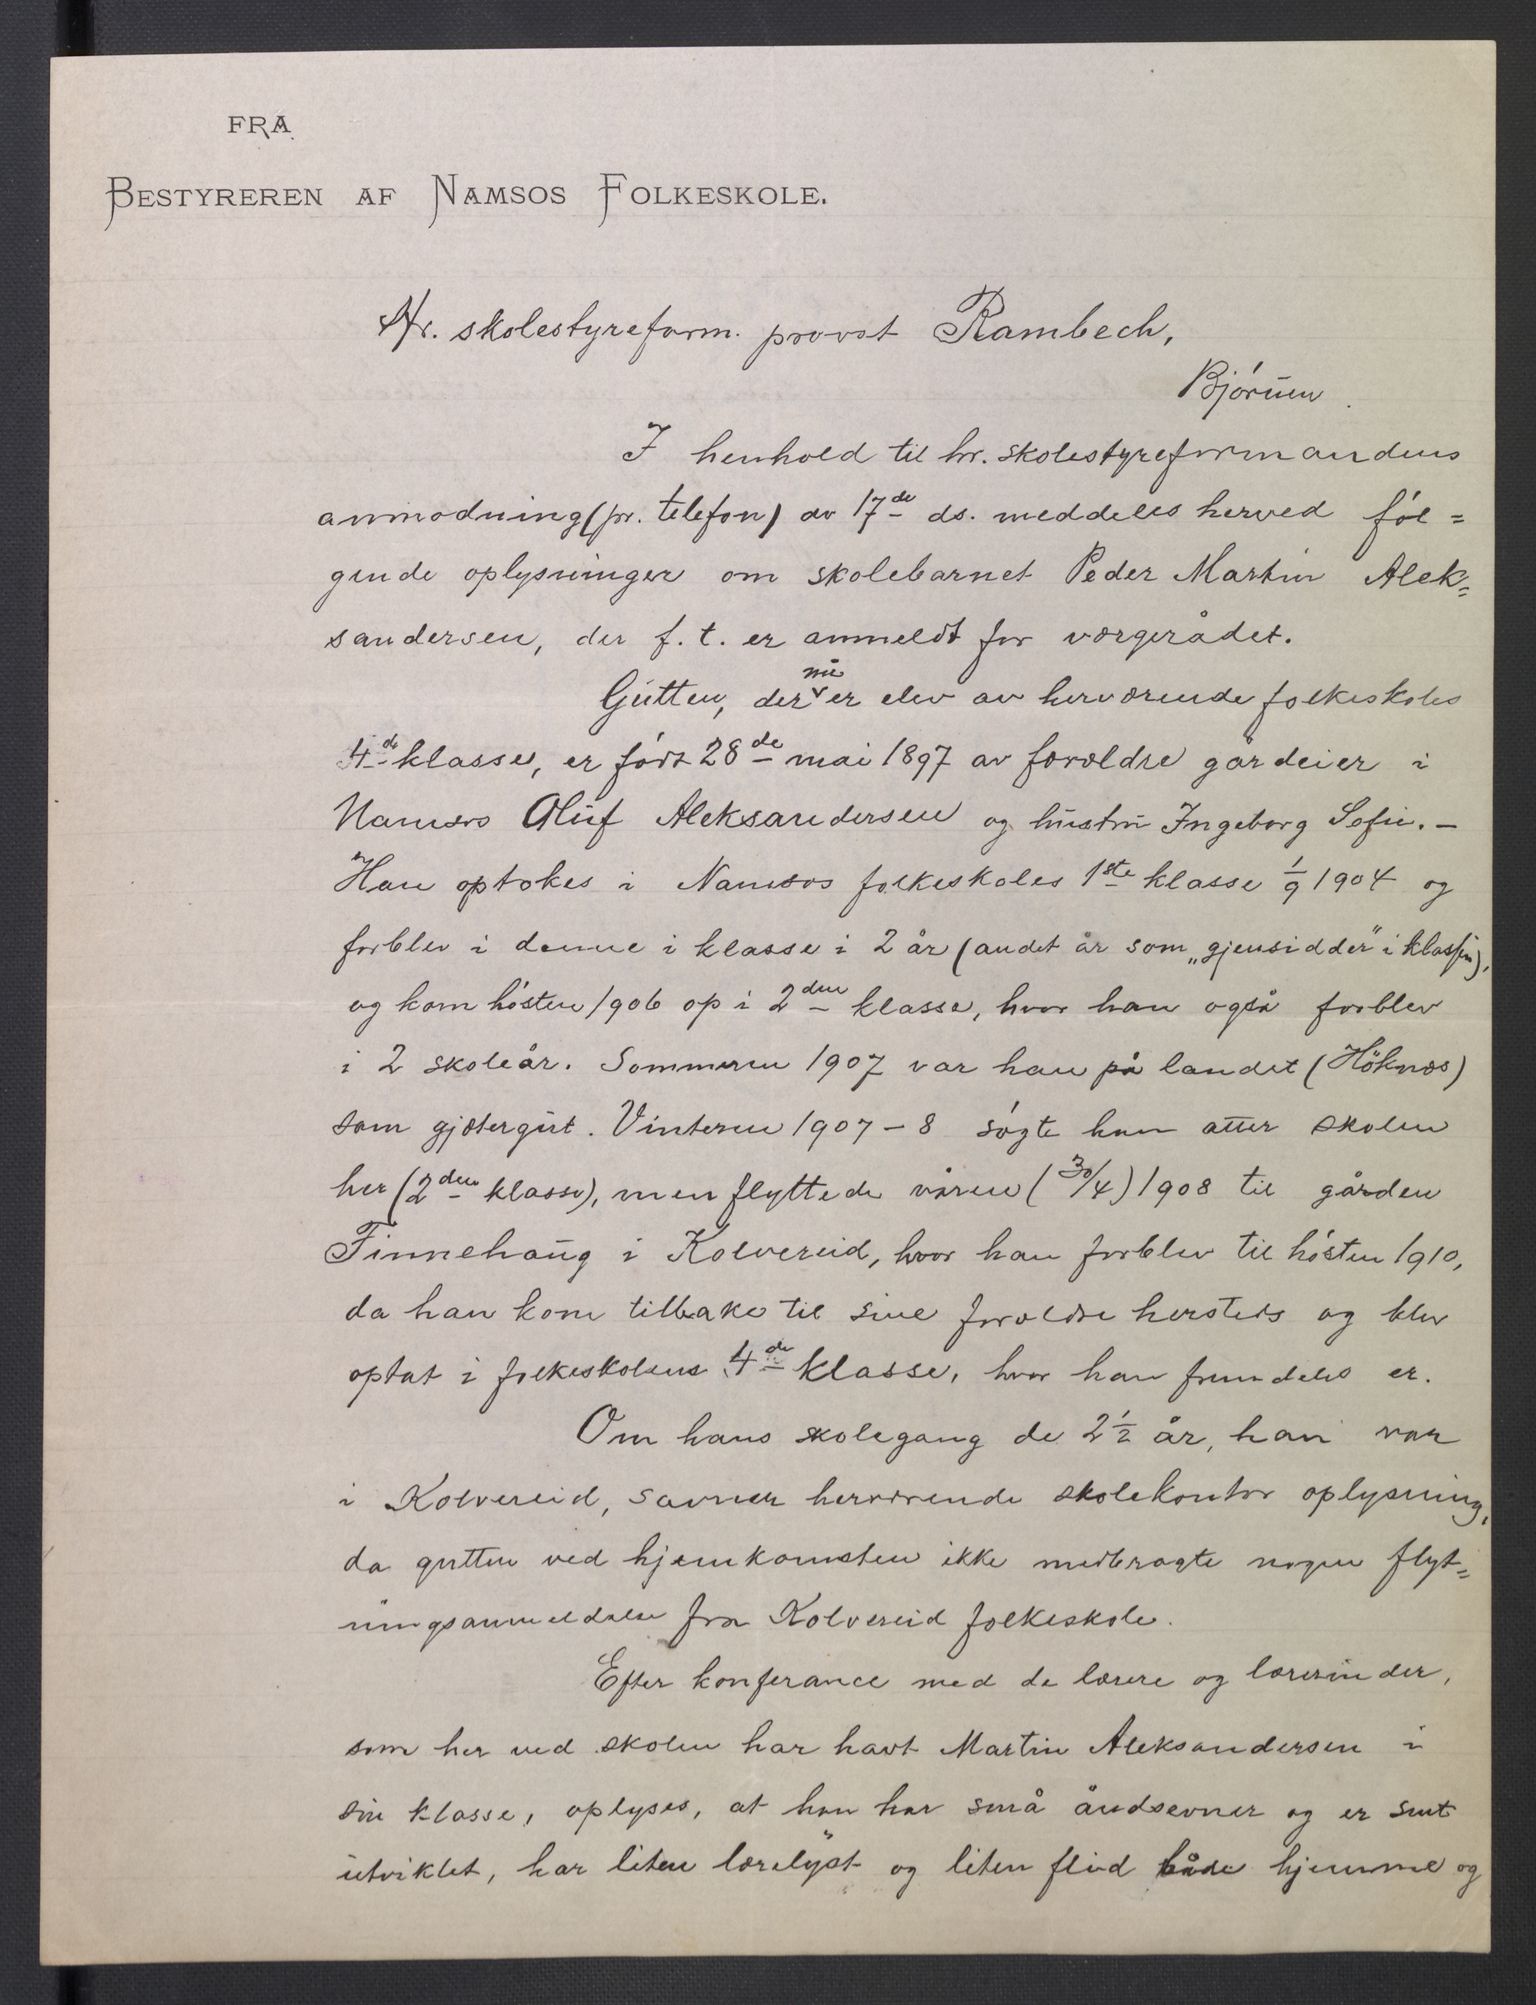 FRA
BESTYREREN AF NAMSOS FOLKESKOLE.
Hr. skolestyreform. provst Rambech,
Bjørum
I henhold til hr. skolestyreformandens
anmodning (pr. telefon) av 17de ds. meddeles herved føl=
gende oplysninger om skolebarnet Peder Martin Alek=
sandersen, der f. t. er anmeldt for værgerådet.
Gutten, der nu er elev av herværende folkeskoles
4de klasse, er født 28de mai 1897 av forældre gårdeier i
Namsos Oluf Aleksandersen og hustru Ingeborg Sofie. —
Han optokes i Namsos folkeskoles 1ste klasse 1/9 1904 og
forblev i denne i klasse i 2 år (andet år som „gjensidder" i klassen),
og kom høsten 1906 op i 2den klasse, hvor han også forblev
i 2 skoleår. Sommeren 1907 var han på landet (Høknes)
som gjætergut. Vinteren 1907–8 søgte han atter skolen
her (2den klasse), men flyttede våren (30/4) 1908 til gården
Finnehaug i Kolvereid, hvor han forblev til høsten 1910,
da han kom tilbake til sine forældre hersteds og blev
optat i folkeskolens 4de klasse, hvor han fremdeles er.
Om hans skolegang de 2 1/2 år, han var
i Kolvereid, savner herværende skolekontor oplysning,
da gutten ved hjemkomsten ikke medbragte nogen flyt=
ningsanmeldelse fra Kolvereid folkeskole.
Efter konferance med de lærere og lærerinder,
som her ved skolen har havt Martin Aleksandersen i
sin klasse, oplyses, at han har små åndsevner og er sent
utviklet, har liten lærelyst og liten flid både hjemme og